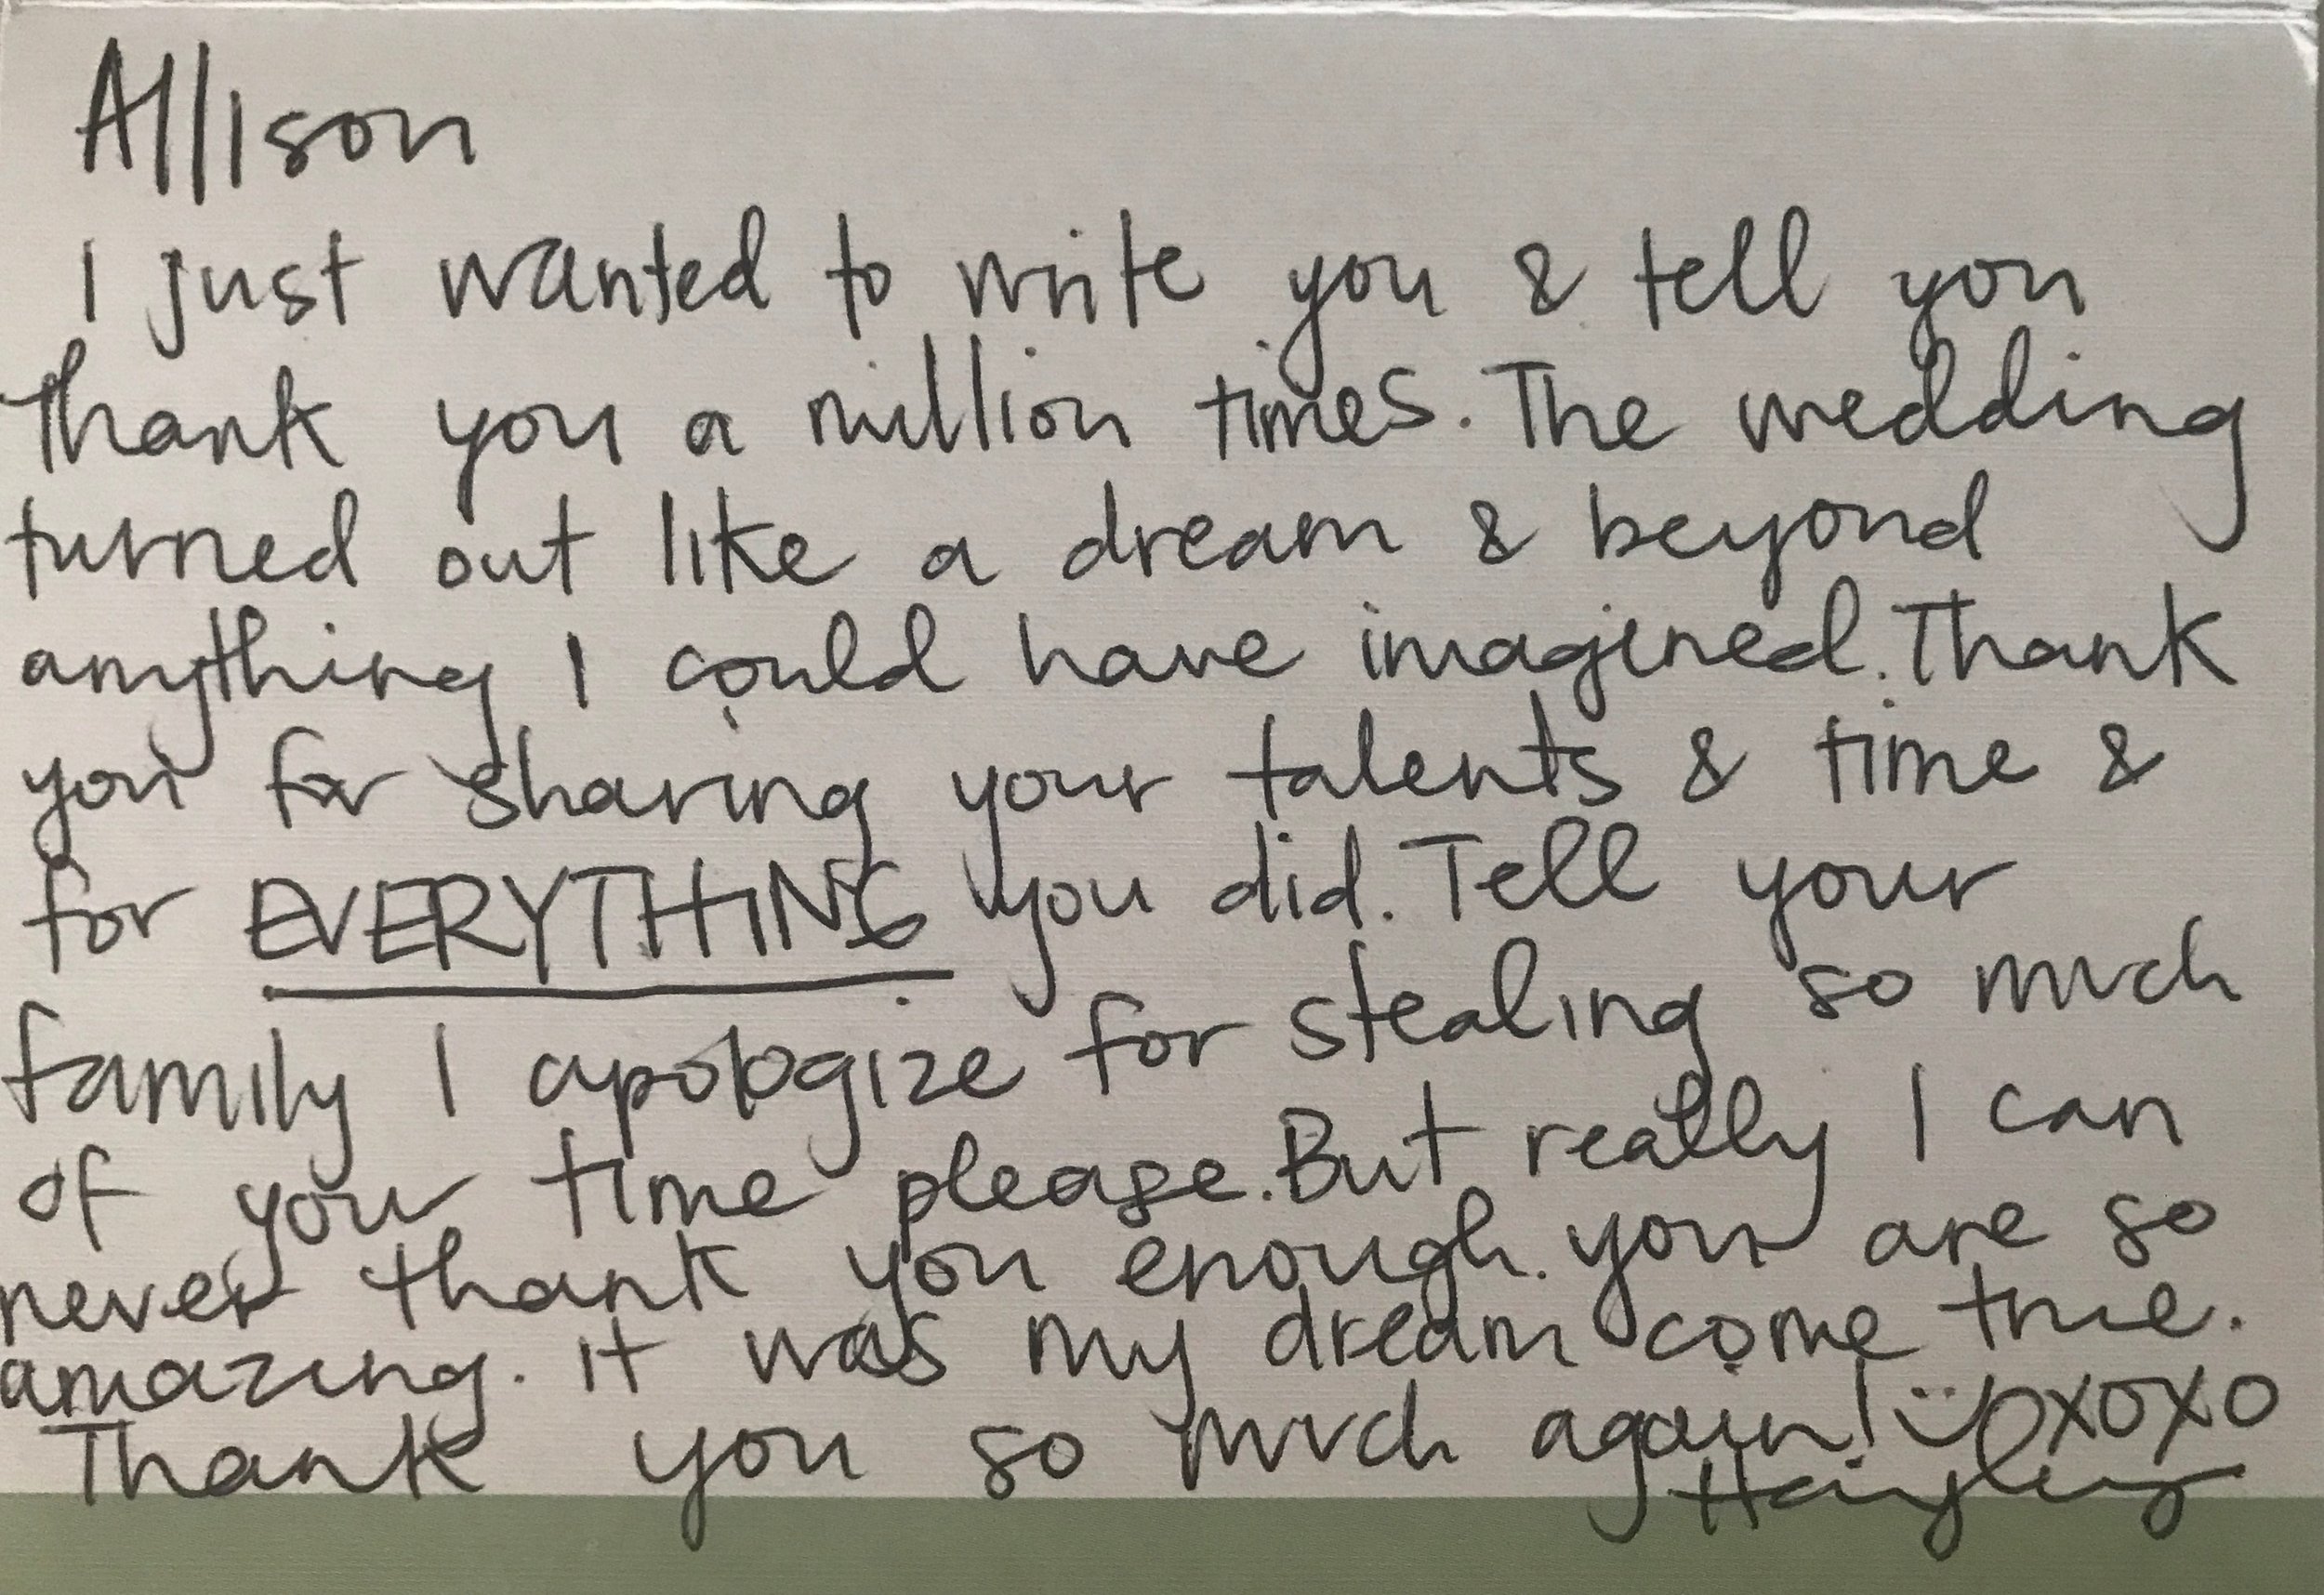 Allison
I just wanted to write you & tell you
thank you a million times. The wedding
turned out like a dream & beyond
anything I could have imagined. Thank
you for sharing your talents & time &
for EVERYTHING you did. Tell your
family I apologize for stealing so much
of your time please. But really I can
never thank you enough. you are so
amazing. It was my dream come true.
Thank you so much again! :) OXOXO
Hayley